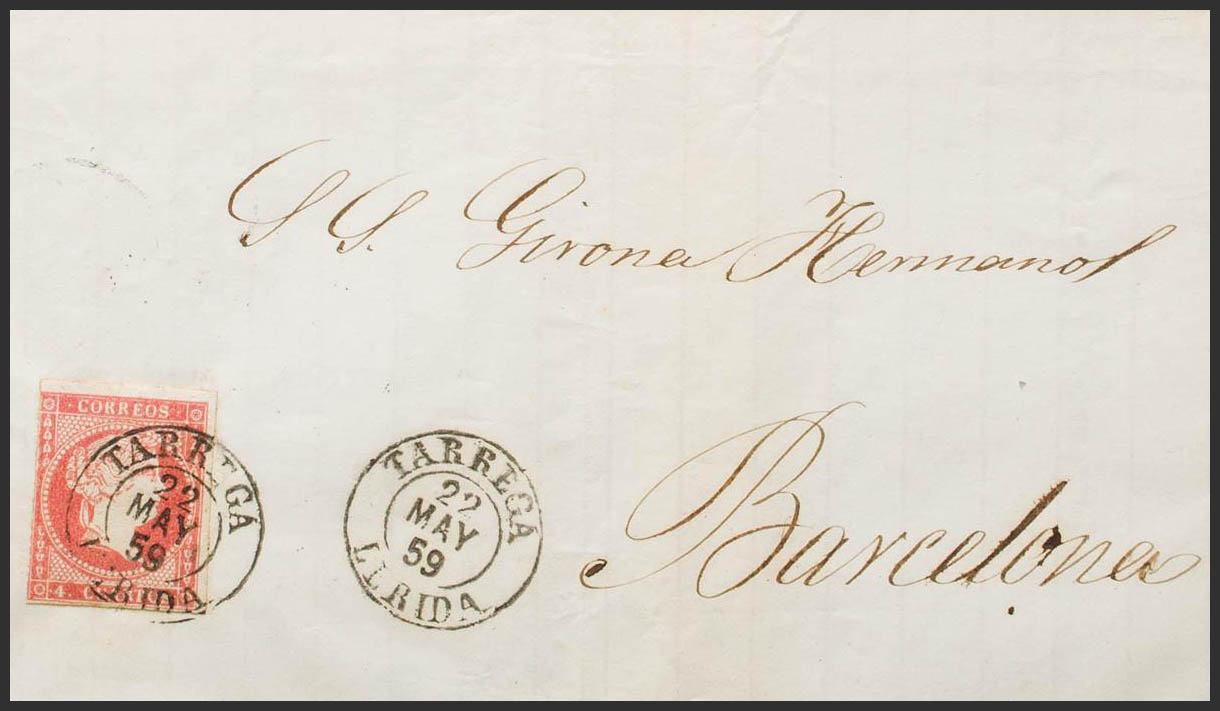 S S. Girona Hermanos
CORREOS
TARREGA
22
MAY
59
LERIDA
TARREGA
22
MAY
59
LERIDA
4. CUARTOS
Barcelona